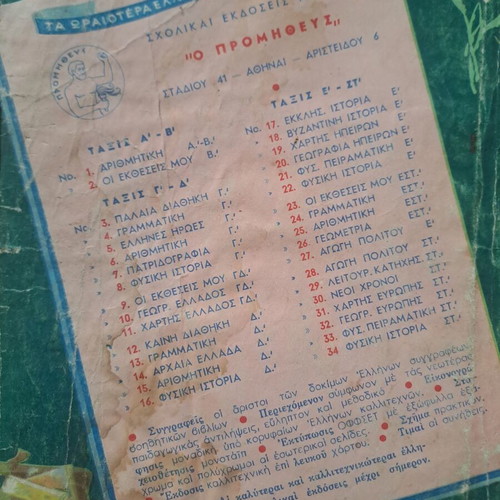 ΤΑ ΩΡΑΙΟΤΕΡΑ
ΠΡΟΜΗΘΕΥΣ
ΣΧΟΛΙΚΑΙ ΕΚΔΟΣΕΙΣ
"Ο ΠΡΟΜΗΘΕΥΣ"
ΣΤΑΔΙΟΥ 41 — ΑΘΗΝΑΙ — ΑΡΙΣΤΕΙΔΟΥ 6
ΤΑΞΙΣ Α' - Β'
No. 1. ΑΡΙΘΜΗΤΙΚΗ Α'.-Β'.
» 2. ΟΙ ΕΚΘΕΣΕΙΣ ΜΟΥ Β'.
ΤΑΞΙΣ Γ' - Δ'
No 3. ΠΑΛΑΙΑ ΔΙΑΘΗΚΗ Γ.'
» 4. ΓΡΑΜΜΑΤΙΚΗ Γ.'
» 5. ΕΛΛΗΝΕΣ ΗΡΩΕΣ Γ.'
» 6. ΑΡΙΘΜΗΤΙΚΗ Γ.'
» 7. ΠΑΤΡΙΔΟΓΡΑΦΙΑ Γ.'
» 8. ΦΥΣΙΚΗ ΙΣΤΟΡΙΑ Γ.'
» 9. ΟΙ ΕΚΘΕΣΕΙΣ ΜΟΥ ΓΔ.'
» 10. ΓΕΩΓΡ. ΕΛΛΑΔΟΣ ΓΔ.'
» 11. ΧΑΡΤΗΣ ΕΛΛΑΔΟΣ ΓΔ.'
» 12. ΚΑΙΝΗ ΔΙΑΘΗΚΗ Δ.'
» 13. ΓΡΑΜΜΑΤΙΚΗ Δ.'
» 14. ΑΡΧΑΙΑ ΕΛΛΑΔΑ Δ.'
» 15. ΑΡΙΘΜΗΤΙΚΗ Δ.'
» 16. ΦΥΣΙΚΗ ΙΣΤΟΡΙΑ Δ.'
ΤΑΞΙΣ Ε' - ΣΤ'
No. 17. ΕΚΚΛΗΣ. ΙΣΤΟΡΙΑ Ε'
» 18. ΒΥΖΑΝΤΙΝΗ ΙΣΤΟΡΙΑ Ε'
» 19. ΧΑΡΤΗΣ ΗΠΕΙΡΩΝ Ε'
» 20. ΓΕΩΓΡΑΦΙΑ ΗΠΕΙΡΩΝ Ε'
» 21. ΦΥΣ. ΠΕΙΡΑΜΑΤΙΚΗ Ε'
» 22. ΦΥΣΙΚΗ ΙΣΤΟΡΙΑ Ε'
» 23. ΟΙ ΕΚΘΕΣΕΙΣ ΜΟΥ ΕΣΤ.'
» 24. ΓΡΑΜΜΑΤΙΚΗ ΕΣΤ.'
» 25. ΑΡΙΘΜΗΤΙΚΗ ΕΣΤ.'
» 26. ΓΕΩΜΕΤΡΙΑ ΕΣΤ.'
» 27. ΑΓΩΓΗ ΠΟΛΙΤΟΥ Ε'
» 28. ΑΓΩΓΗ ΠΟΛΙΤΟΥ ΣΤ.'
» 29. ΛΕΙΤΟΥΡ. ΚΑΤΗΧΗΣ. ΣΤ.'
» 30. ΝΕΟΙ ΧΡΟΝΟΙ ΣΤ.'
» 31. ΧΑΡΤΗΣ ΕΥΡΩΠΗΣ ΣΤ.'
» 32. ΓΕΩΓΡ. ΕΥΡΩΠΗΣ ΣΤ.'
» 33. ΦΥΣ. ΠΕΙΡΑΜΑΤΙΚΗ ΣΤ.'
» 34 ΦΥΣΙΚΗ ΙΣΤΟΡΙΑ ΣΤ.'
• Συγγραφεῖς οἱ ἄριστοι τῶν δοκίμων Ἑλλήνων συγγραφέων
βοηθητικῶν βιβλίων • Περιεχόμενον σύμφωνον μὲ τὰς νεωτέρας
παιδαγωγικὰς ἀντιλήψεις, εὔληπτον καὶ μεθοδικό • Εἰκονογρά-
φησις μοναδικὴ ὑπὸ κορυφαίων Ἑλλήνων καλλιτεχνῶν. • Στα-
χειοθέτησις μονοτάϊπ • Ἐκτύπωσις ΟΦΦΣΕΤ μὲ ἐξώφυλλα ἑξά-
χρωμα καὶ πολύχρωμοι αἱ ἐσωτερικαὶ σελίδες. • Σχῆμα πρακτικόν.
Ἔκδοσις καλλιτεχνικὴ ἐπὶ λευκοῦ χάρτου. • Τιμαὶ αἱ συνήθεις.
Αἱ καλύτεραι καὶ καλλιτεχνικώτεραι ἑλλη-
καὶ ἐκδόσεις μέχρι σήμερον.